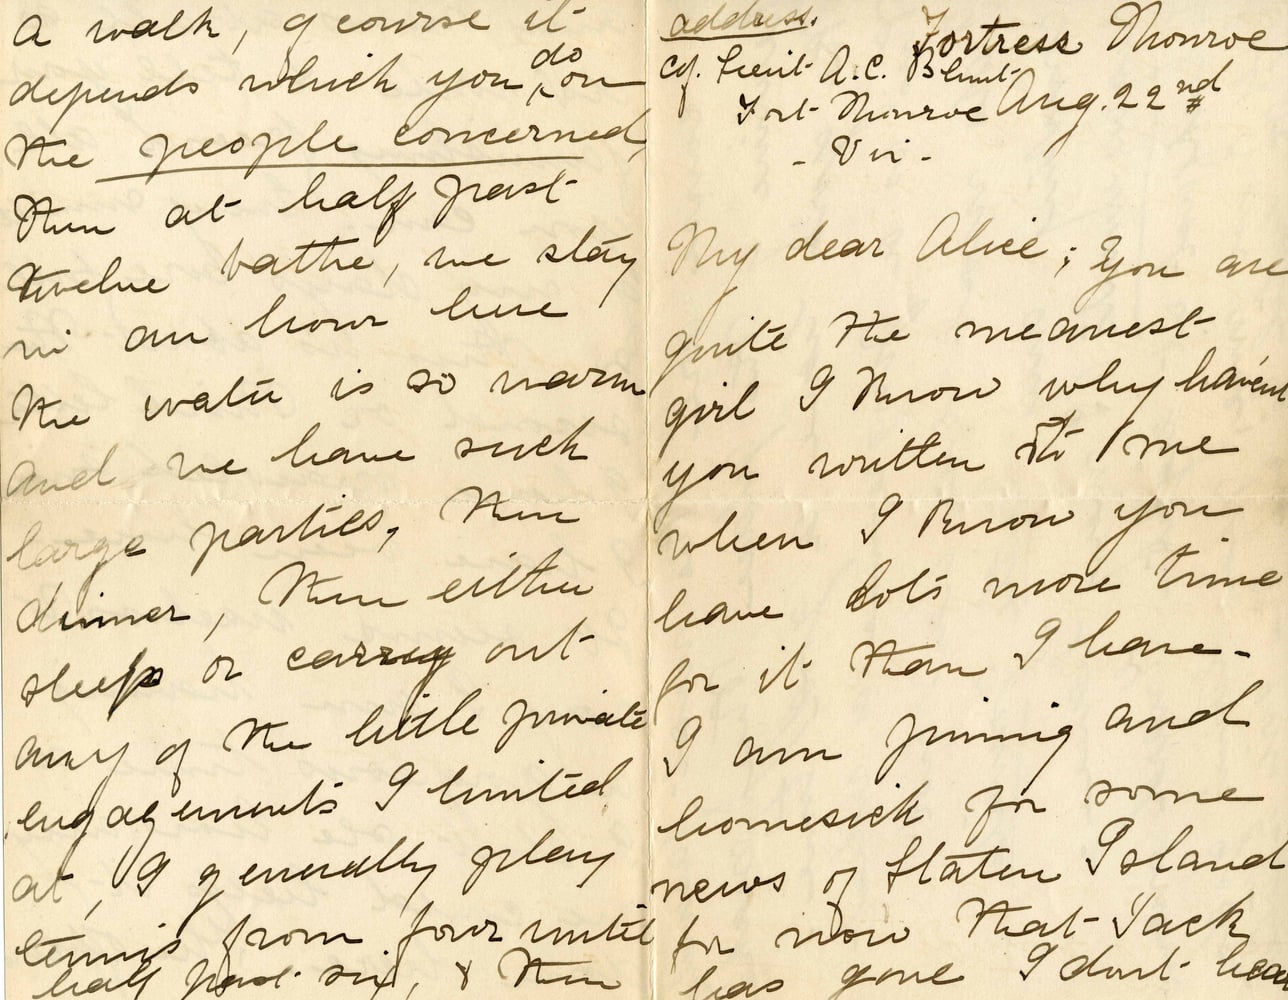 a walk, of course it
depends which you do on
the people concerned,
then at half past
twelve bathe, we stay
in an hour here
the water is so warm
and we have such
large parties, then
dinner, then either
sleep or carry out
any of the little private
engagements I hinted
at, I generally play
tennis from four until
half past six, & then
address.
c/o. Lieut A.C. Blunt
Fort Monroe
- Va -
Fortress Monroe
Aug. 22nd
My dear Alice; You are
quite the meanest
girl I know why haven't
you written to me
when I know you
have lots more time
for it than I have-
I am pining and
homesick for some
news of Staten Island
for now that Jack
has gone I dont hear